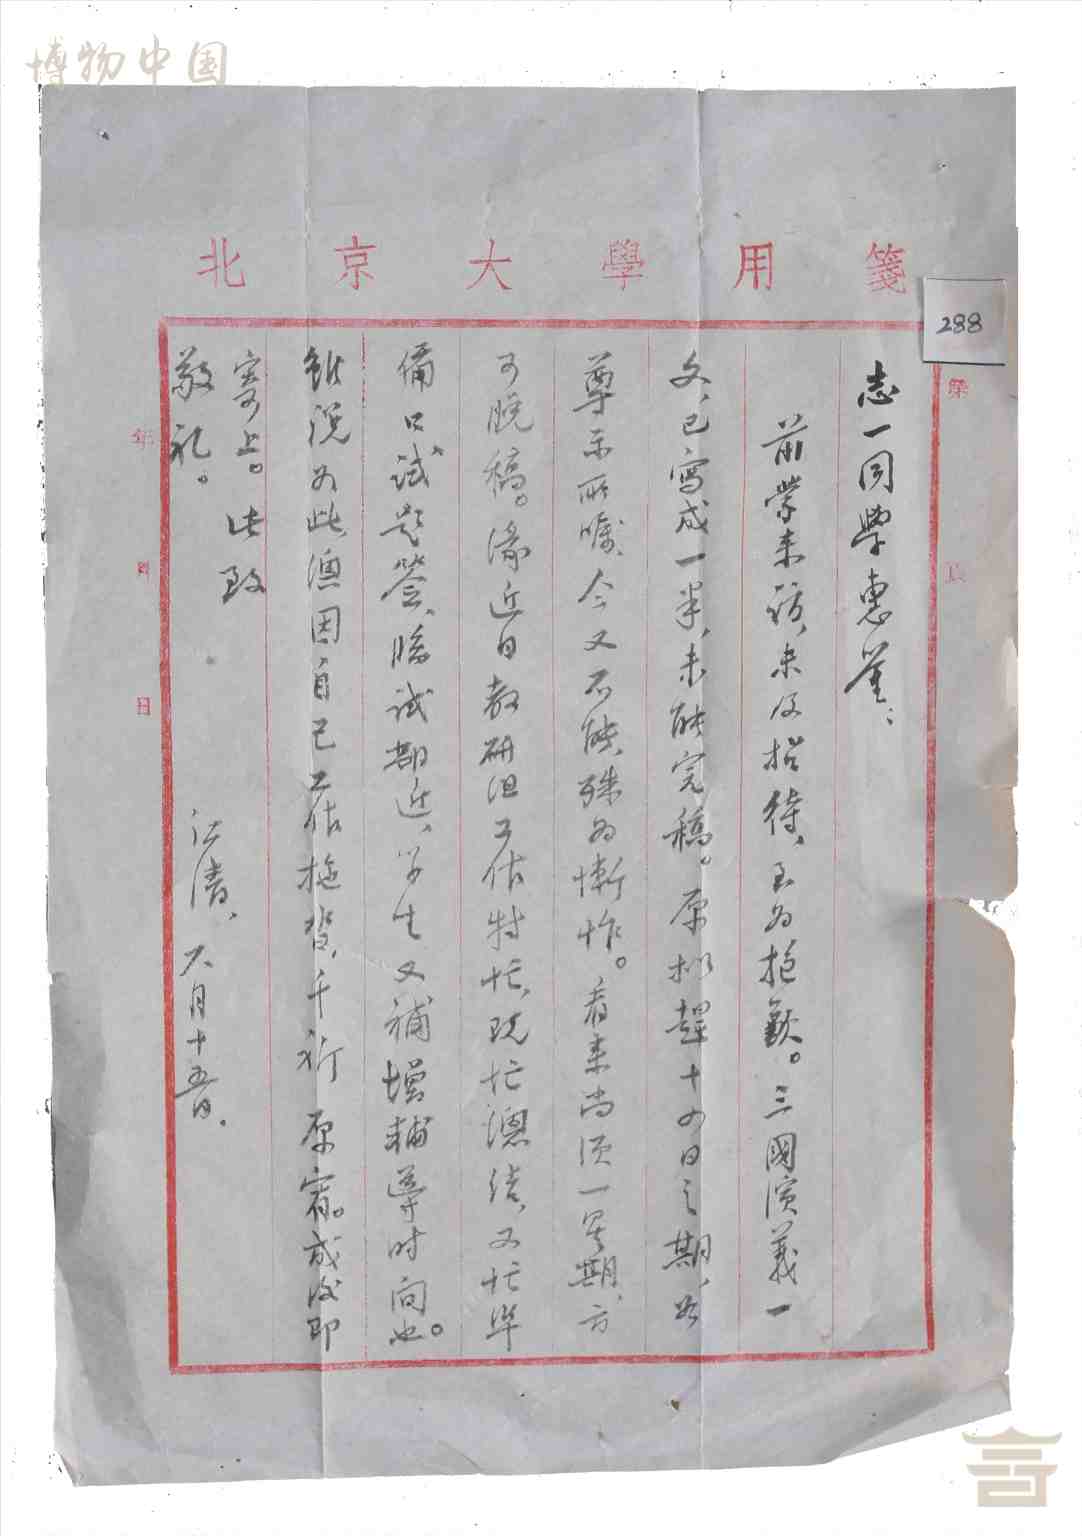 博物中国
北京大學用箋
288
第
頁
志一同學惠鉴：
前蒙来訪，未及招待，至为抱歉。三國演義一
文，已寫成一半，未能完稿。原拟趕十四日之期，如
尊示所嘱，今又不能，殊为慚怍。看来尚須一星期，方
可脱稿。缘近日教研组工作特忙，既忙總结，又忙準
備口试题签，临试都近，学生又補增輔導时间也。
虽说如此，总因自己工作拖沓，千祈原宥。成后即
寄上。此致
敬礼。
江清，六月十五日。
年
月
日